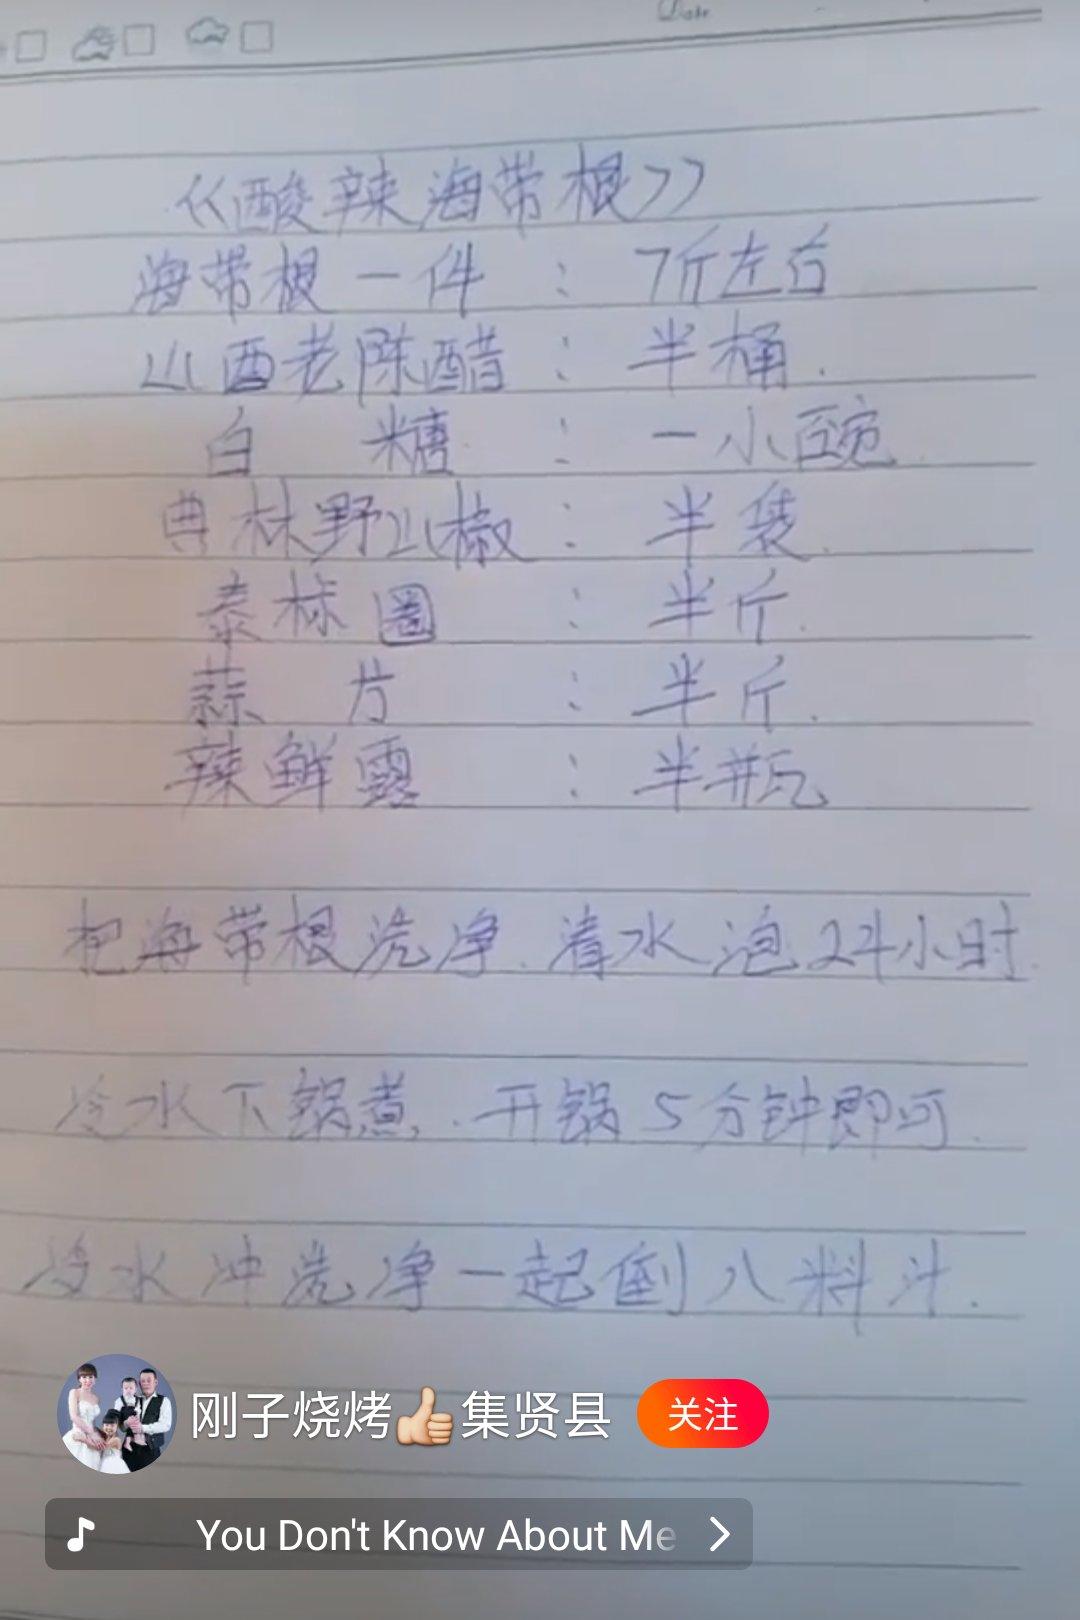 Date
《酸辣海带根》
海带根一件：7斤左右
山西老陈醋：半桶.
白糖：一小碗.
典林野山椒：半袋.
泰椒圈：半斤.
蒜片：半斤.
辣鲜露：半瓶
把海带根洗净.清水泡24小时.
冷水下锅煮.开锅5分钟即可.
冷水冲洗净一起倒入料汁.
刚子烧烤👍集贤县 关注
You Don't Know About Me